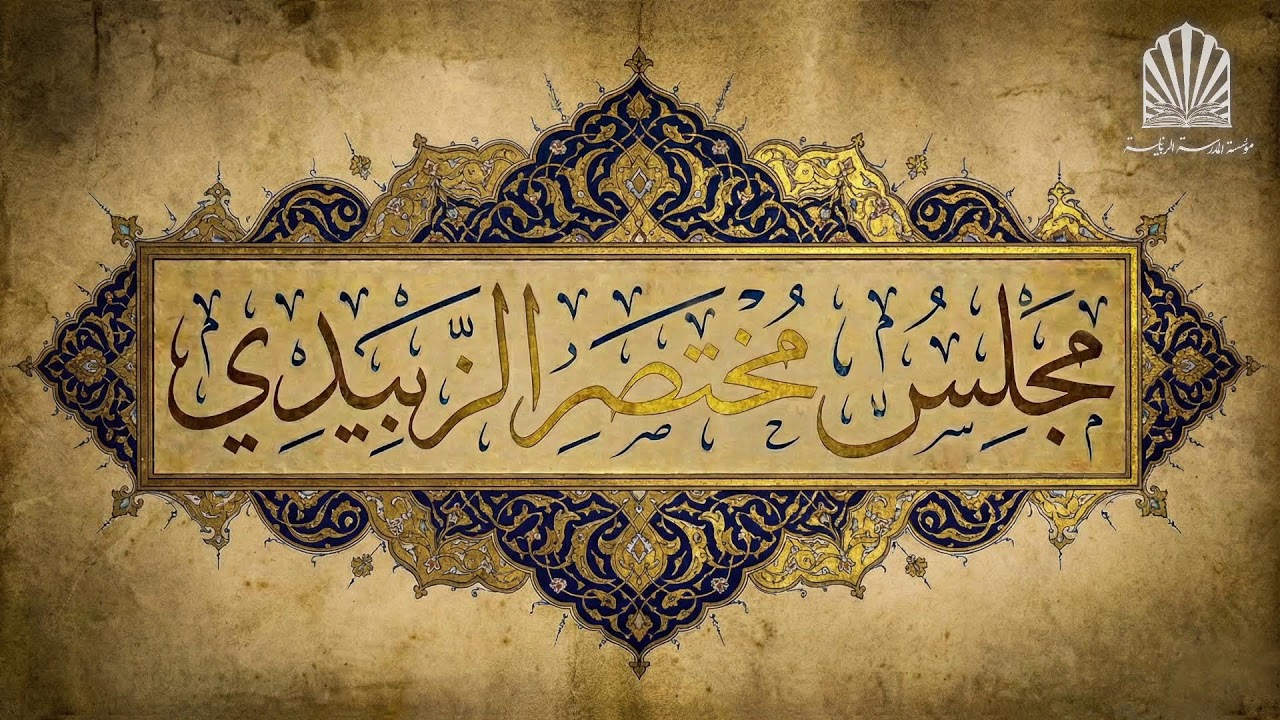 مؤسسة المدرسة الربانية
مَجْلِسُ مُخْتَصَرِ الزَّبِيْدِي